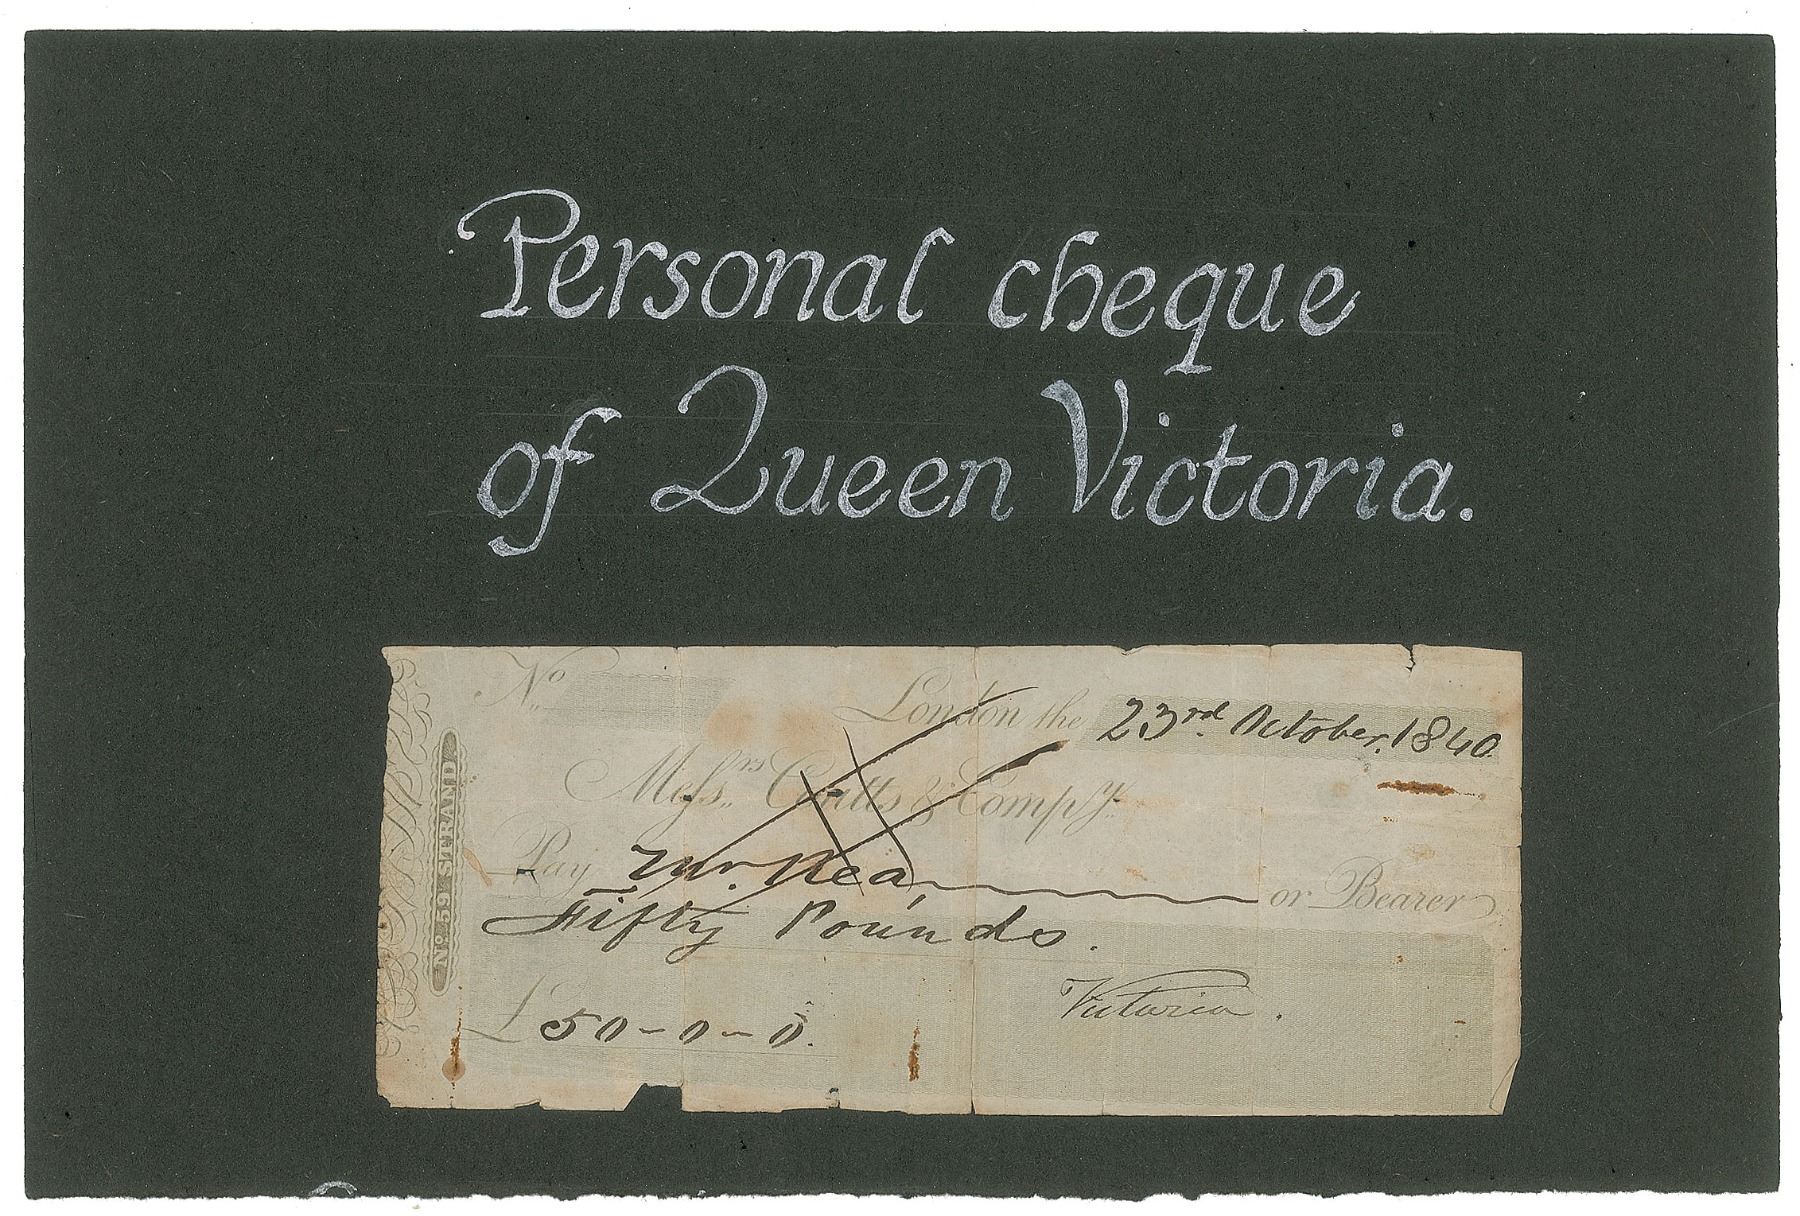 Personal cheque
of Queen Victoria.
No
London the 23rd. October. 1840.
Messrs Coutts & Compy.
Pay Mr. Rea or Bearer
Fifty Pounds.
£50-0-0.
Victoria.
No. 59 STRAND